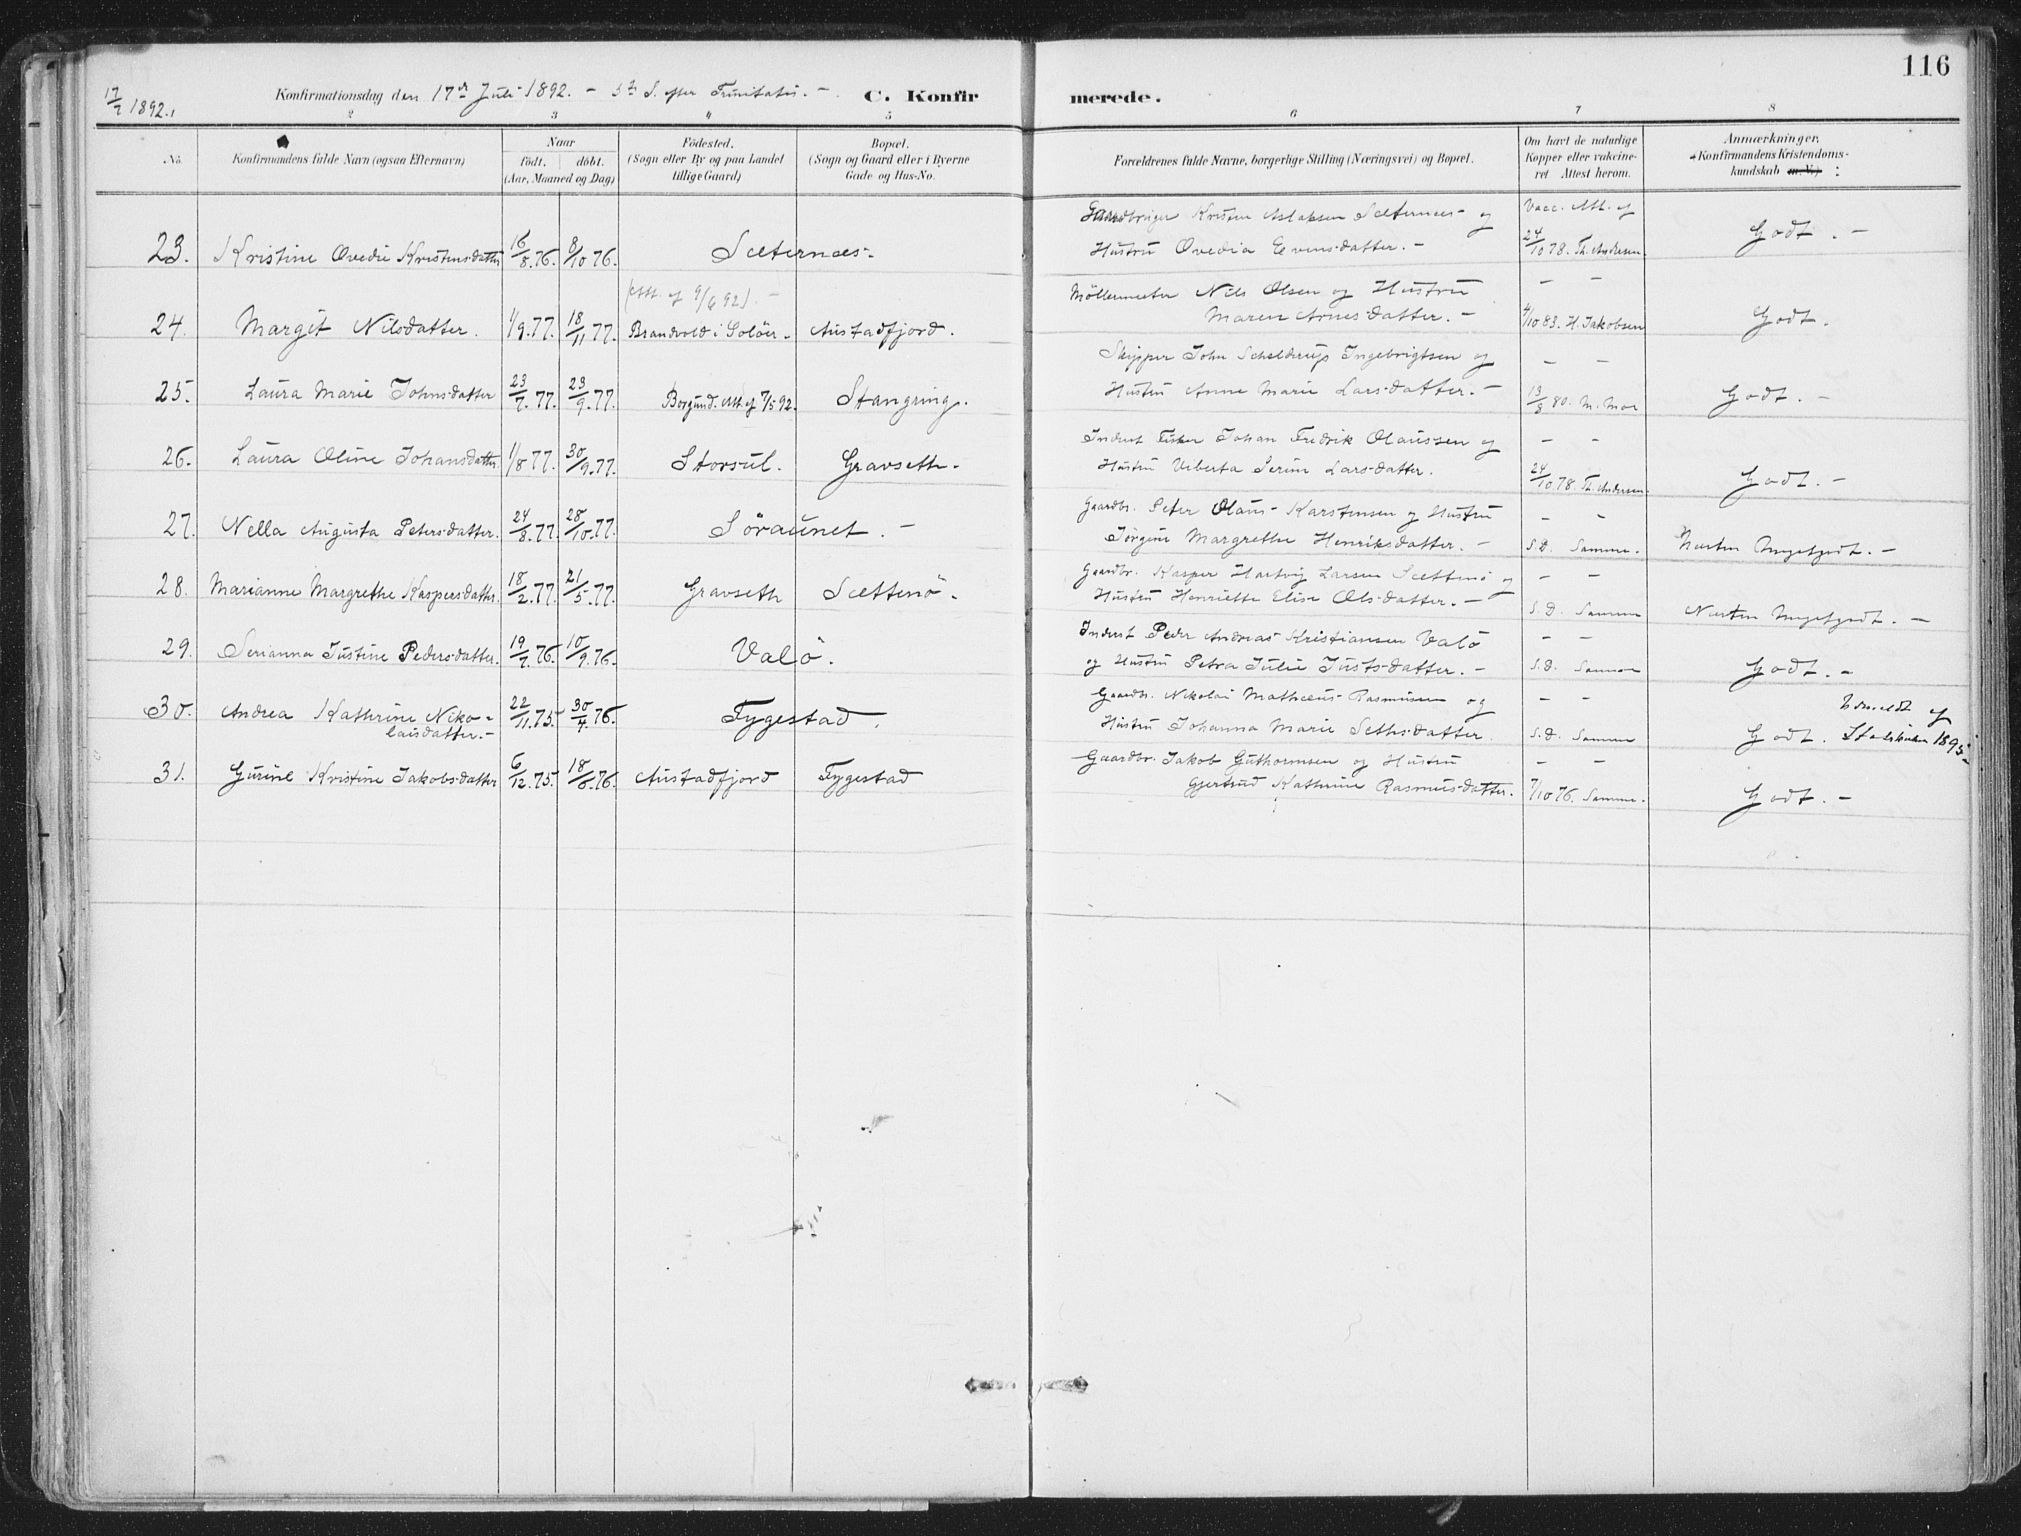 116
17/7 1892.
Konfirmationsdag den 17de Juli 1892. – 5te S. efter Trinitatis. –
C. Konfirmerede.
2 3 4 5 6 7 8
No.
Konfirmandens fulde Navn (ogsaa Efternavn)
Naar
födt. döbt.
(Aar, Maaned og Dag)
Födested.
(Sogn eller By og paa Landet
tillige Gaard)
Bopæl.
(Sogn og Gaard eller i Byerne
Gade og Hus-No.
Forældrenes fulde Navne, borgerlige Stilling (Næringsvei) og Bopæl.
Om havt de naturlige
Kopper eller vakcine-
ret Attest herom.
Anmærkninger,
Konfirmandens Kristendoms-
kundskab m. V.) :
Gaardbruger Kristen Aslaksen Sæternæs og Vacc. Att. af
23. Kristine Ovedie Kristensdatter 16/8 76. 8/10 76. Sæternæs – Hustru Ovedia Evensdatter. – 24/10 78. Th. Andersen Godt. –
(Att. af 9/6 92). – Möllermester Nils Olsen og Hustru – –
24. Margit Nilsdatter. 1/9. 77. 18/11 77. Brandvold i Solöer – Austadfjord. Maren Arnesdatter. – 4/10 83. H. Jakobsen Godt.
Skipper John Schelderup Ingebrigtsen og – –
25. Laura Marie Johnsdatter 23/7. 77. 23/9. 77. Borgund. Att. af 7/5 92. Stangring. Hustru Anne Marie Larsdatter. – 13/8 80. M. Moe Godt. –
Inderst Fisker Johan Fredrik Olaussen og – –
26. Laura Oline Johansdatter. 1/8 77. 30/9. 77. Storsul. Gravseth. Hustru Viberta Serine Larsdatter. 24/10 78. Th. Andersen Godt. –
Gaardbr. Peter Olaus Karstensen og Hustru – –
27. Nella Augusta Petersdatter. 24/8. 77. 28/10. 77. Söraunet – Jörgine Margrethe Henriksdatter. – S. D. Samme. Næsten Megetgodt. –
Gaardbr. Kasper Hartvig Larsen Sættenö og – –
28. Marianne Margrethe Kaspersdatter. 18/2. 77. 21/5. 77. Gravseth Sættenö – Hustru Henriette Elise Olsdatter. – S. D. Samme Næsten Megetgodt. –
Inderst Peder Andreas Kristiansen Valö – –
29. Serianna Justine Pedersdatter. 19/7. 76. 10/9. 76. Valö. og Hustru Petra Julie Justsdatter. – S. D. Samme Godt. –
Gaardbr. Nikolai Mathæus Rasmusen og – –
30. Andrea Kathrine Niko-
laisdatter. – 22/11. 75 30/4. 76. Fygestad. Hustru Johanna Marie Sethsdatter. S. D. Samme Godt.
Udmeldt af
Statskirken 1895 –
Gaardbr. Jakob Guthormsen og Hustru – –
31. Gurine Kristine Jakobsdatter 6/12. 75. 18/6. 76. Austadfjord Fygestad Gjertrud Kathrine Rasmusdatter. 7/10 76. Samme. Godt. –